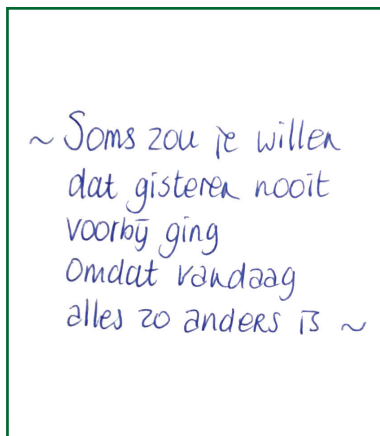 ~ Soms zou je willen
dat gisteren nooit
voorbij ging
Omdat vandaag
alles zo anders is ~